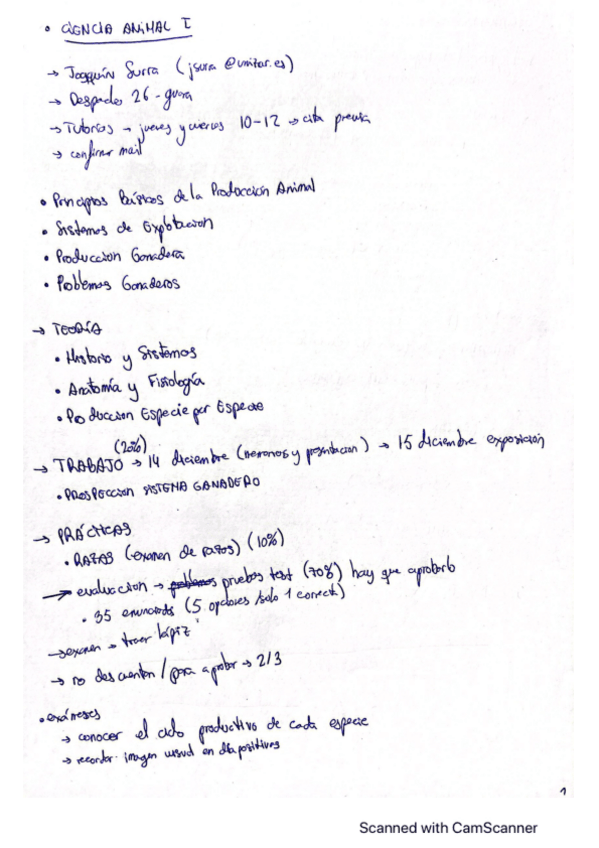 • CIENCIA ANIMAL I
→ Joaquín Surra (jsurra@unizar.es)
→ Despacho 26 - guara
→ Tutorías → jueves y viernes 10-12 → cita previa
→ confirmar mail
• Principios Básicos de la Producción Animal
• Sistemas de Explotación
• Producción Ganadera
• Problemas Ganaderos
→ TEORÍA
• Historia y Sistemas
• Anatomía y Fisiología
• Producción Especie por Especie
(20%)
→ TRABAJO → 14 diciembre (memorias y presentación) → 15 diciembre exposición
• PROSPECCION SISTEMA GANADERO
→ PRÁCTICAS
• RAZAS (examen de razas) (10%)
→ evaluación → pruebas test (70%) hay que aprobarlo
• 35 enunciados (5 opciones/solo 1 correcta)
→ examen → traer lápiz
→ no descuentan / para aprobar → 2/3
• exámenes
→ conocer el ciclo productivo de cada especie
→ recordar imagen visual en diapositivas
1
Scanned with CamScanner